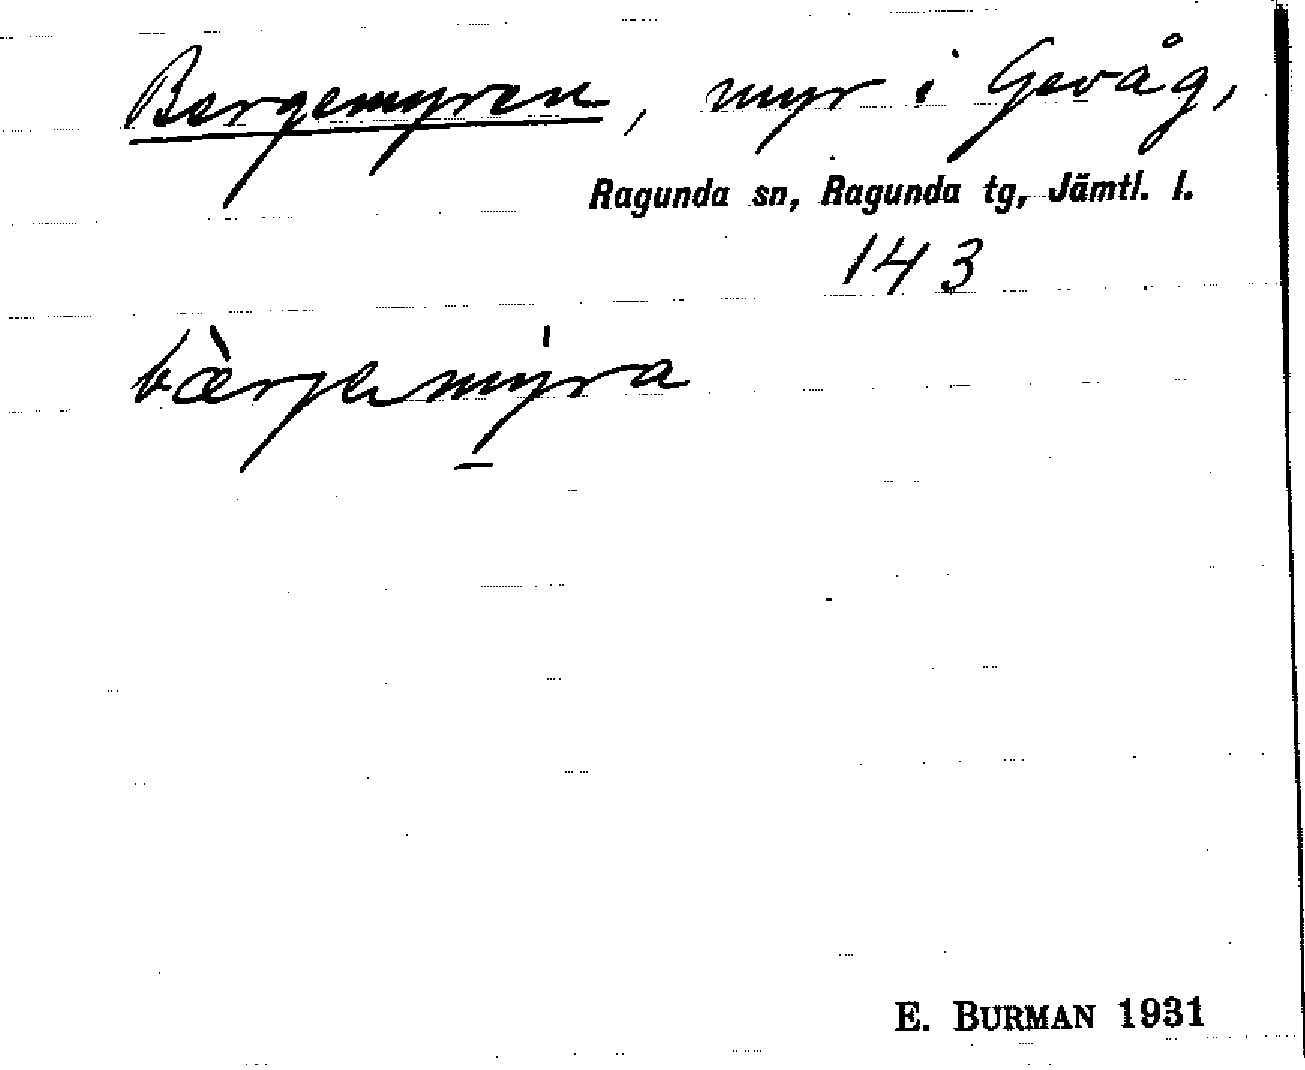 Bergemyren, myr i Gevåg,
Ragunda sn, Ragunda tg, Jämtl. l.
143
bæ̀rjemýra
E. BURMAN 1931